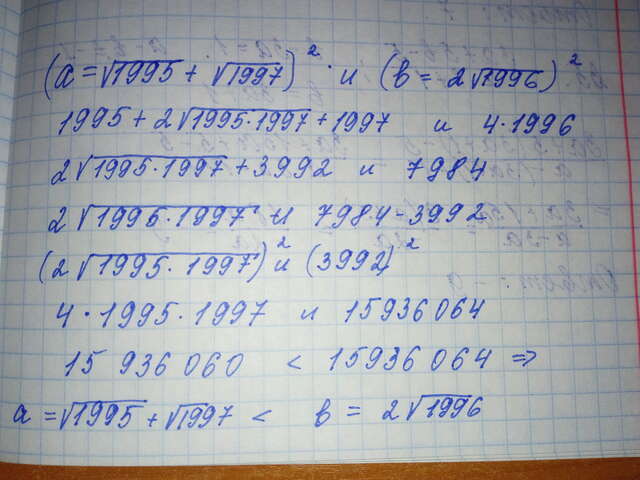 (a = √1995 + √1997)² и (в = 2√1996)²
1995 + 2√1995·1997 + 1997 и 4·1996
2√1995·1997 + 3992 и 7984
2√1995·1997 и 7984 - 3992
(2√1995·1997)² и (3992)²
4·1995·1997 и 15936064
15 936 060 < 15936 064 =>
a = √1995 + √1997 < в = 2√1996